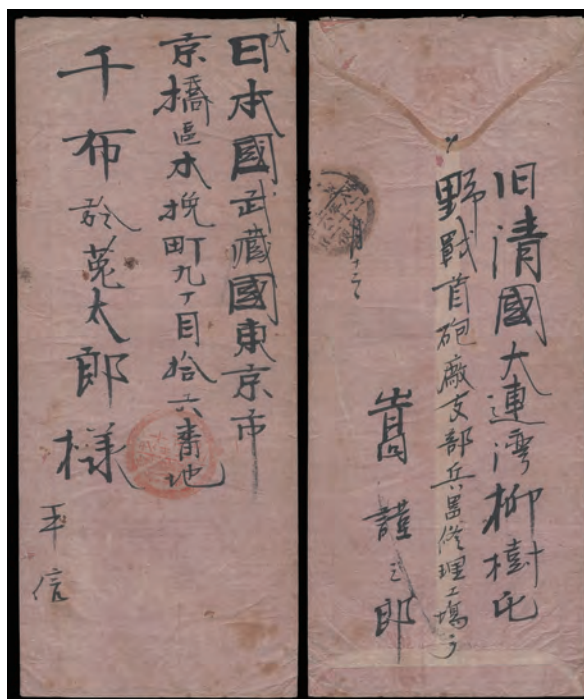 大
日本國武藏國東京市
京橋區木挽町九丁目拾六番地
千布於菟太郎様
平信
旧清國大連湾柳樹屯
野戰首砲廠支部兵器修理工場
嵩謹三郎
月十六